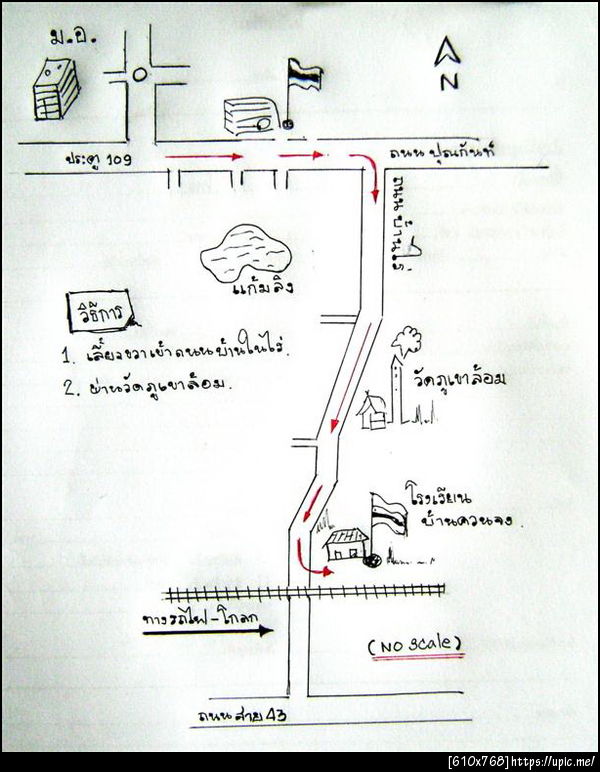 ม.อ.
N
ประตู 109
ถนน ปุณณกัณฑ์
ถนน บ้านไร่
แก้มลิง
วิธีการ
1. เลี้ยวขวาเข้าถนนบ้านในไร่.
2. ผ่านวัดภูเขาล้อม.
วัดภูเขาล้อม
โรงเรียน
บ้านควนจง.
ทางรถไฟ-โกลก
(NO Scale)
ถนนสาย 43
[610x768]https://upic.me/